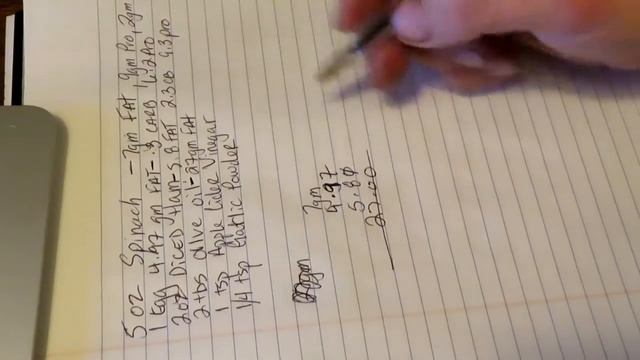 5 oz Spinach - .7gm FAT .9gm Pro, .2gm
1 Egg 4.97 gm FAT - .3 CARB 6.2 PRO
2oz Diced Ham - 5.8 FAT 2.3 CB 9.3 pro
2 tbs olive oil - 27gm FAT
1 tsp Apple Cider Vinegar
1/4 tsp Garlic Powder
.7gm
4.97
5.80
27.00